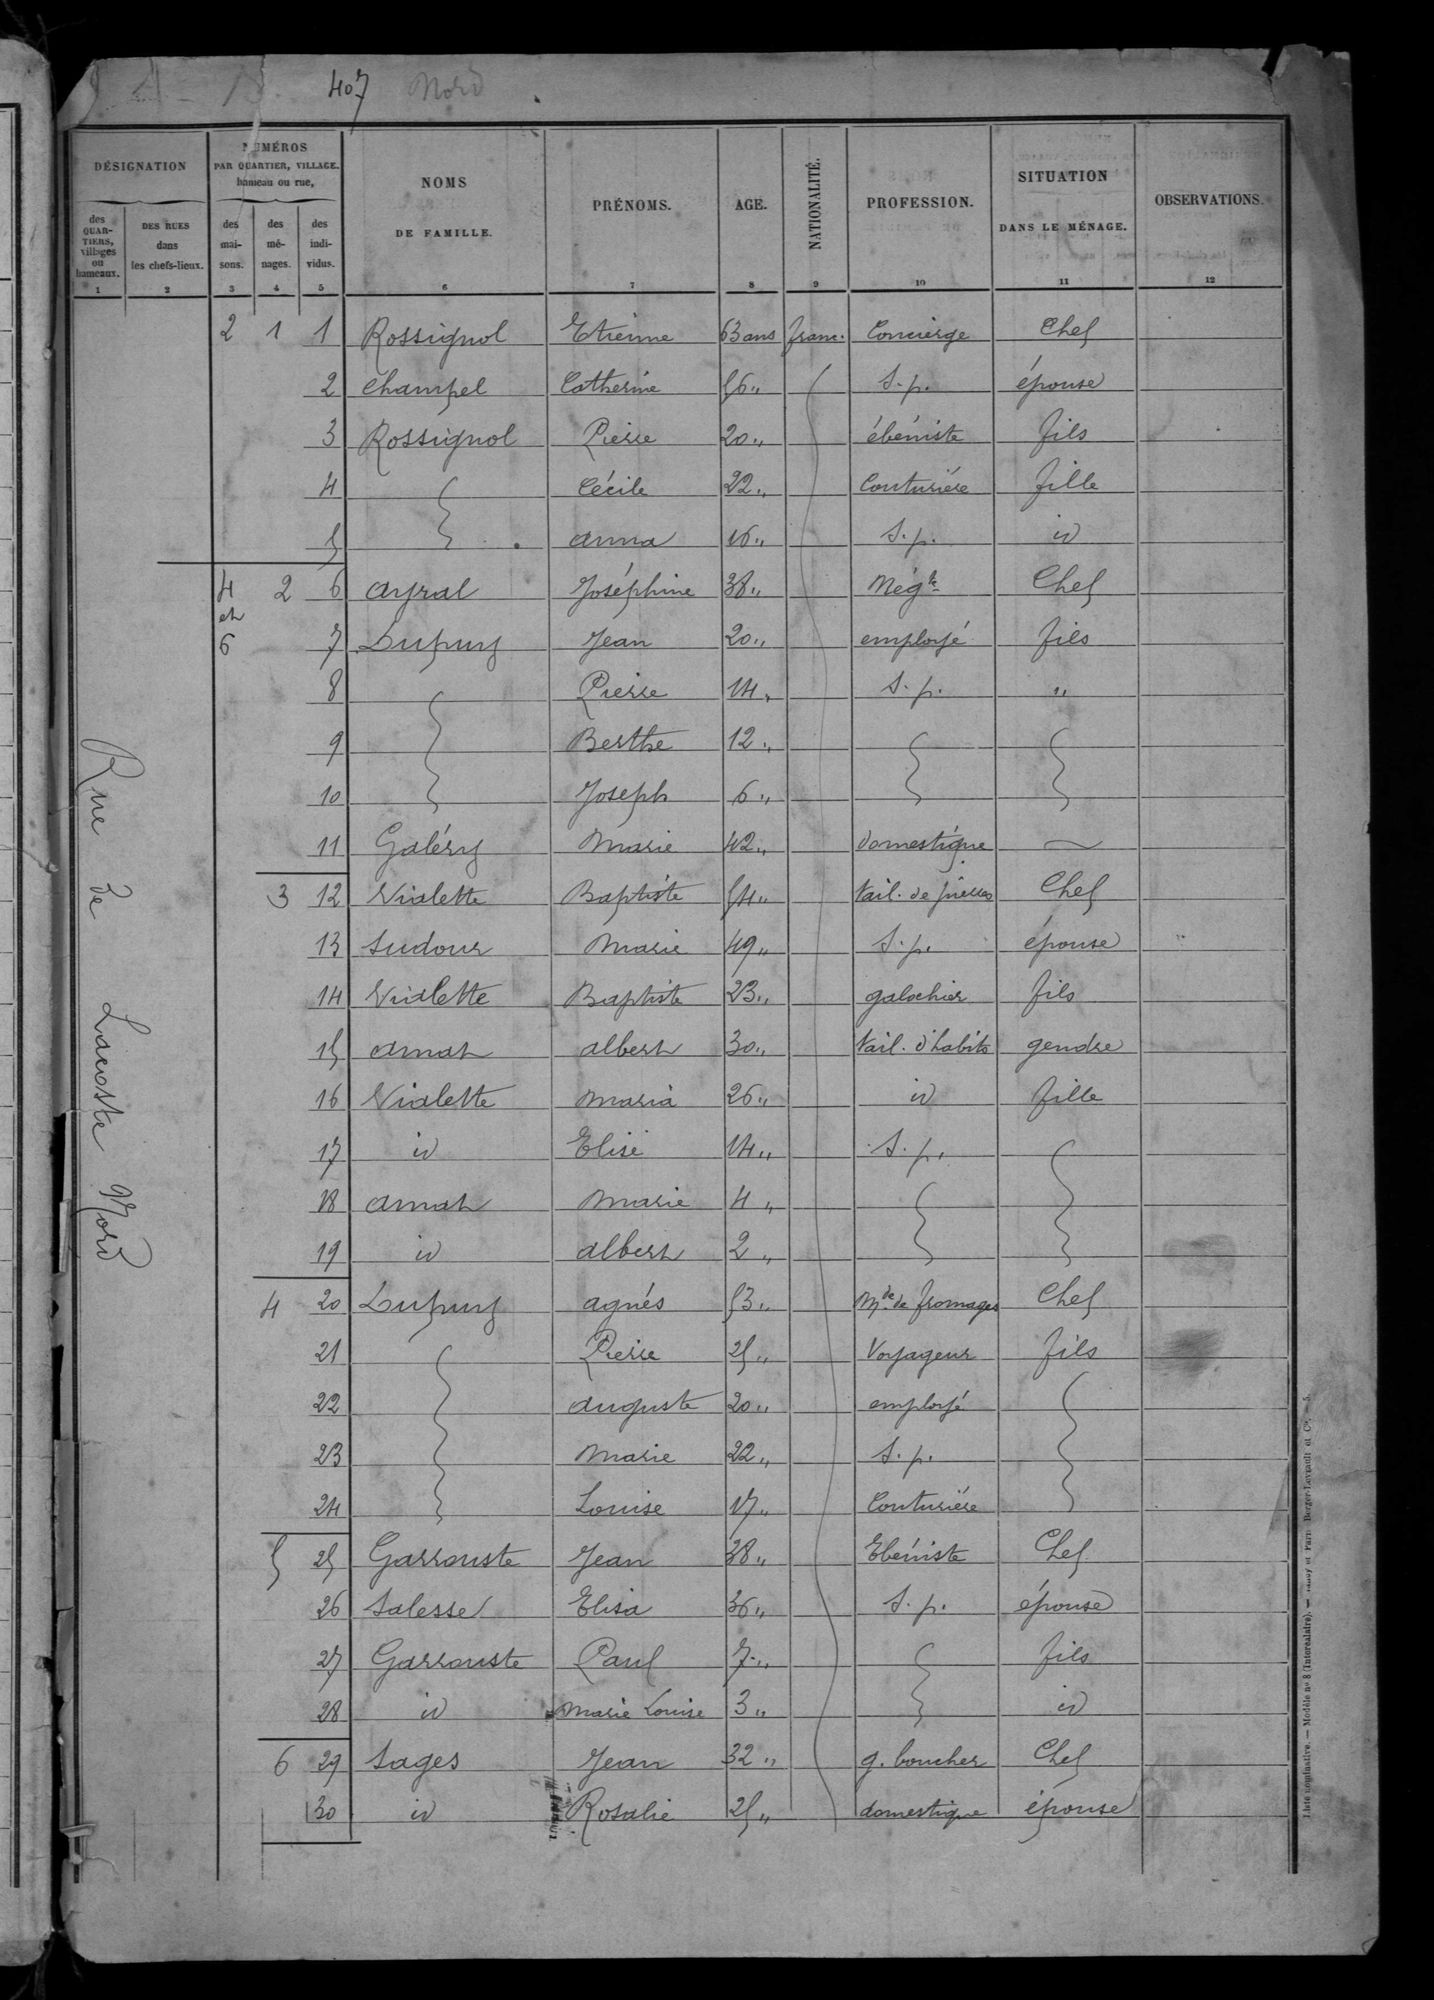 407 Nord
DÉSIGNATION
des QUARTIERS, villages ou hameaux.
1
DES RUES dans les chefs-lieux.
2
NUMÉROS
PAR QUARTIER, VILLAGE.
hameau ou rue,
des maisons.
3
des ménages.
4
des individus.
5
NOMS
DE FAMILLE.
6
PRÉNOMS.
7
AGE.
8
NATIONALITÉ.
9
PROFESSION.
10
SITUATION
DANS LE MÉNAGE.
11
OBSERVATIONS.
12
Rue de Lacoste Nord
2 1 1 Rossignol Etienne 63 ans franc. Concierge Chef
2 Champel Catherine 56 " S.p. épouse
3 Rossignol Pierre 20 " ébéniste fils
4 Cécile 22 " Couturière fille
5 anna 16 " S.p. id
4 et 6 2 6 ayral Joséphine 38 " Négte Chef
7 Dupuy Jean 20 " employé fils
8 Pierre 14 " S.p. "
9 Berthe 12 "
10 Joseph 6 "
11 Galéry Marie 42 " domestique
3 12 Vialette Baptiste 54 " tail. de pierres Chef
13 Sudour Marie 49 " S.p. épouse
14 Vialette Baptiste 23 " galochier fils
15 amat albert 30 " tail. d'habits gendre
16 Vialette Maria 26 " id fille
17 id Elise 14 " S.p.
18 amat Marie 4 "
19 id albert 2 "
4 20 Dupuy agnès 53 " Mde de fromages Chef
21 Pierre 25 " Voyageur fils
22 auguste 20 " employé
23 Marie 22 " S.p.
24 Louise 17 " Couturière
5 25 Garrouste Jean 38 " Ebéniste Chef
26 Salesse Elisa 36 " S.p. épouse
27 Garrouste Paul 7 " fils
28 id Marie Louise 3 " id
6 29 Sages Jean 32 " g. boucher Chef
30 id Rosalie 25 " domestique épouse
Liste nominative. — Modèle no 8 (Intercalaire). — Nancy et Paris Berger-Levrault et Cie. — 5.